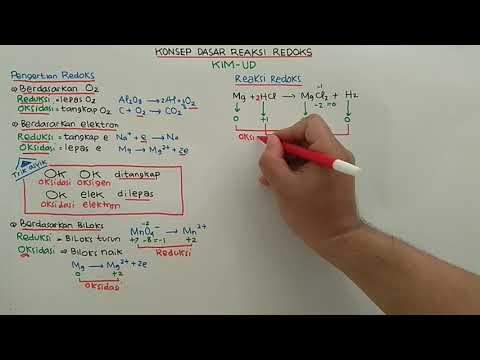 KONSEP DASAR REAKSI REDOKS
KIM-UD
Pengertian Redoks
⇒ Berdasarkan O₂
Reduksi = lepas O₂ Al₂O₃ → 2Al + O₂
Oksidasi = tangkap O₂ C + O₂ → CO₂
⇒ Berdasarkan elektron
Reduksi = tangkap e Na⁺ + e → Na
Oksidasi = lepas e Mg → Mg²⁺ + 2e
Trik asyik
OK OK ditangkap
oksidasi oksigen
OK elek dilepas
oksidasi elektron
⇒ Berdasarkan Biloks
-2
Reduksi = Biloks turun MnO₄⁻ → Mn²⁺
+7 -8 = -1 +2
Reduksi
Oksidasi = Biloks naik
Mg → Mg²⁺ + 2e
0 +2
Oksidasi
Reaksi Redoks
-1
Mg + 2HCl → MgCl₂ + H₂
-2 =0
0 +1 0
Oksi